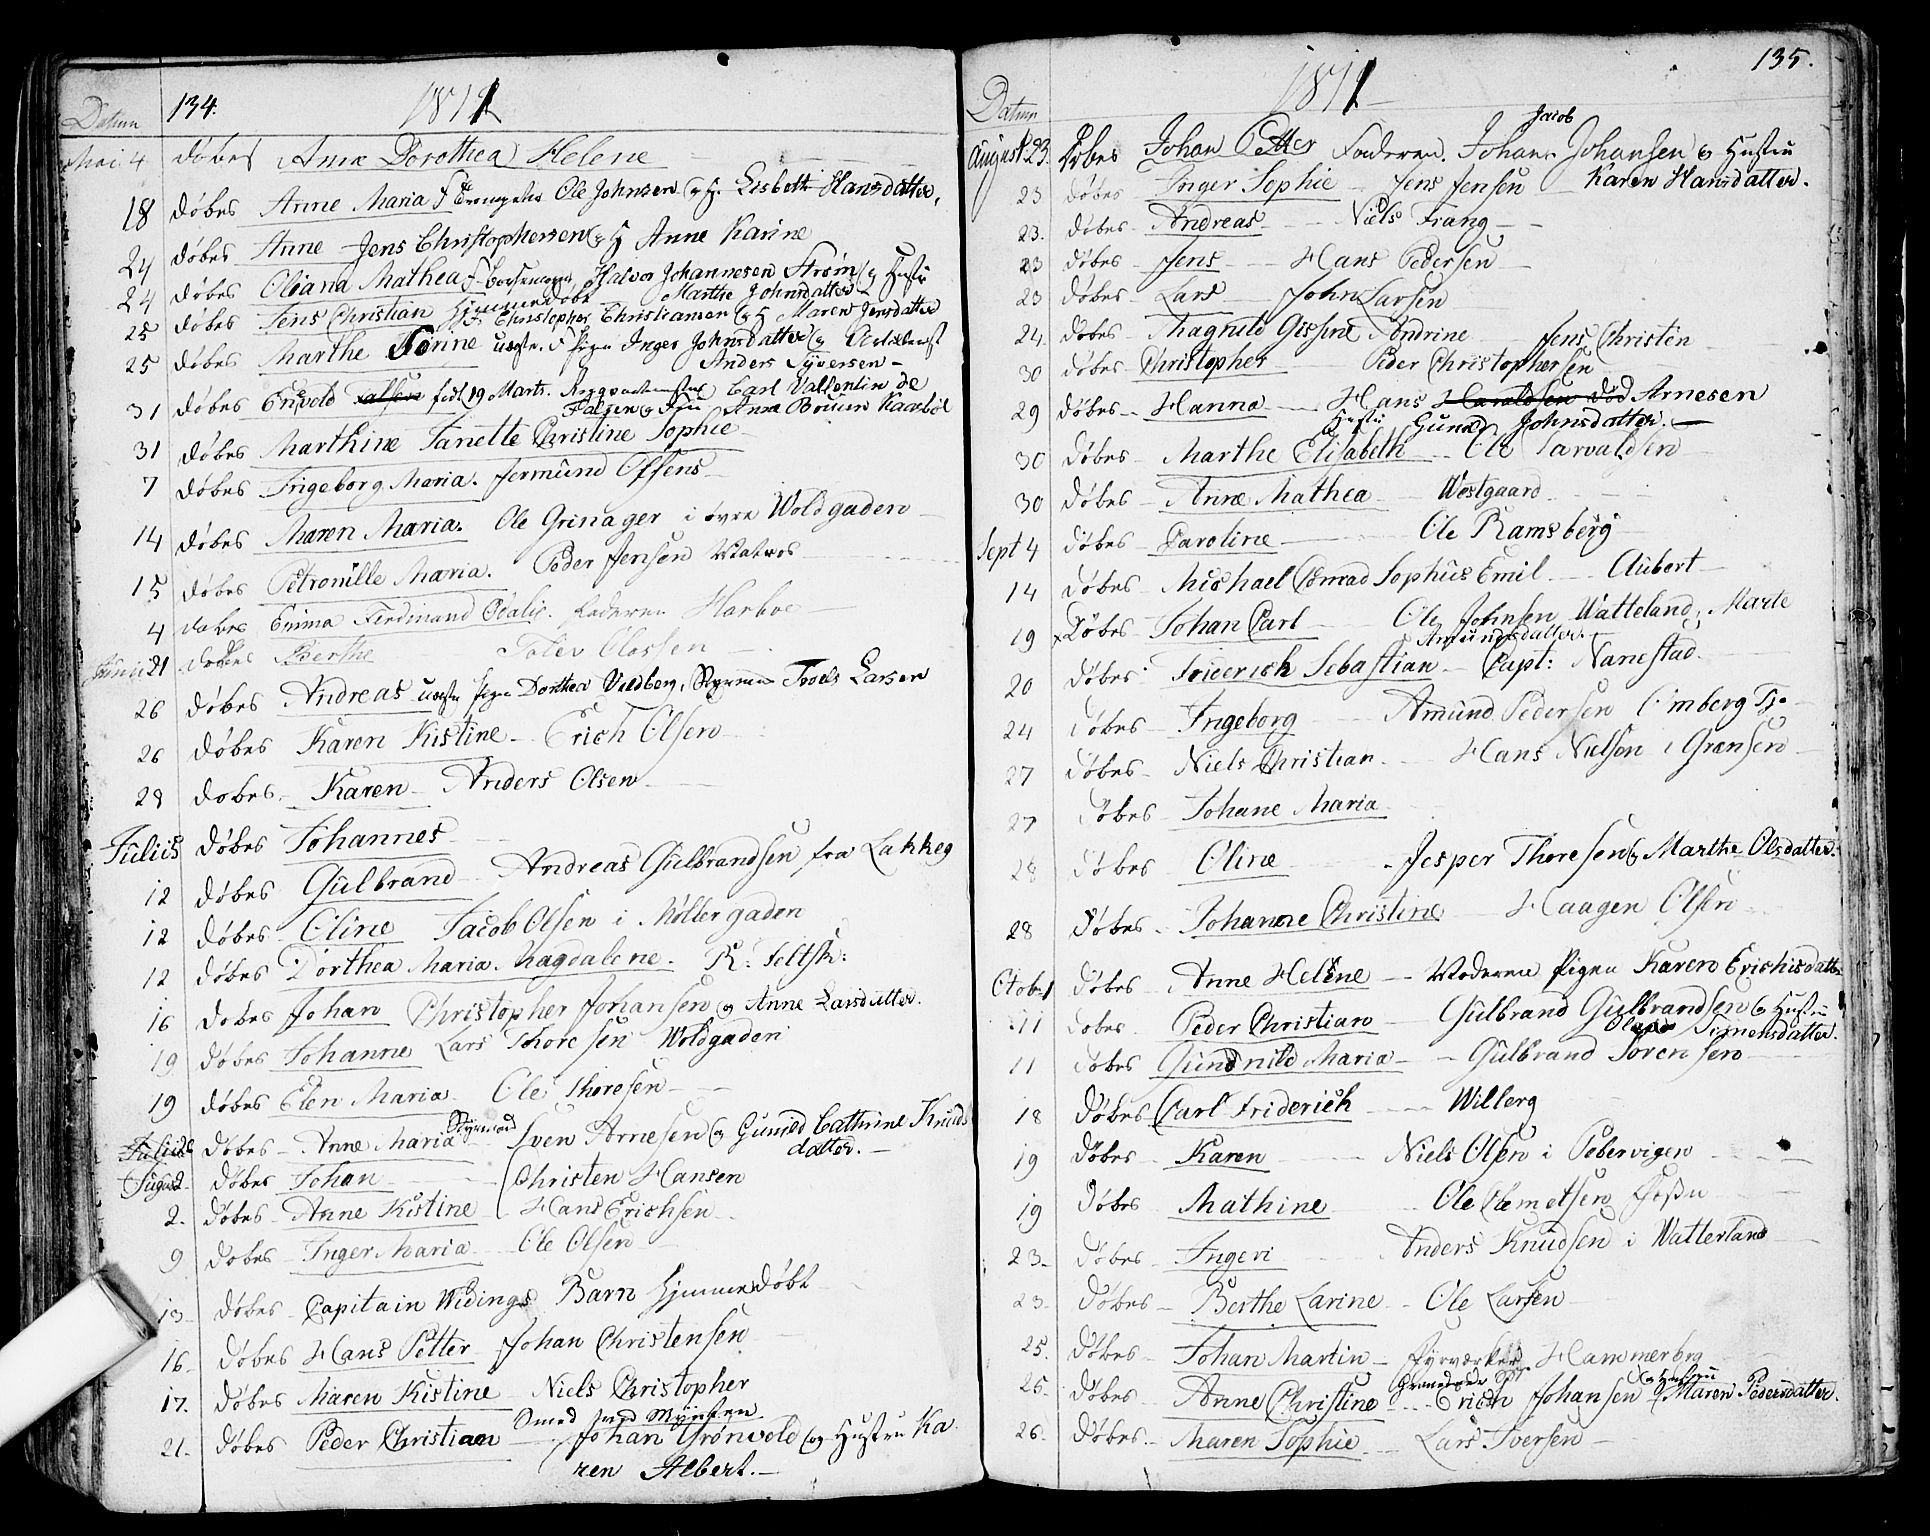 134.
1811
Datum
Mai 4 døbes Anne Dorothea Helene
18 døbes Anne Maria F Ole Johnsen og H. Lisbeth Hansdatter,
24 døbes Anne Jens Christophersen og H Anne Karine
24 døbes Oliana Mathea F Halvor Johannesen Strøm og Hustru
Marthe Johnsdatter
25 døbes Jens Christian hjemmedøbt
F. Christopher Christiansen og H Maren Jensdatter
25 døbes Marthe Torine uægte. F Pigen Inger Johnsdatter og
Anders Syversen
31 døbes Enevold født 19 Marts. Carl Vallentin de
Falsen og Fru Anna Kaasbøl
31 døbes Marthine Janette Christine Sophie
7 døbes Ingeborg Maria. Jermund Olsens
14 døbes Maren Maria. Ole Grinager i øvre Woldgaden
15 døbes Petronille Maria. Peder Jensen Matros
4 døbes Emma Ferdinand faderen Harboe
Junii 21 døbes Berthe Clossen
26 døbes Andreas uægte Pigen Dorthea Vedberg, Styrmand Troels Larsen
26 døbes Karen Kistine Erich Olsen
28 døbes Karen Anders Olsen
Juliis døbes Johannes
12 døbes Gulbrand Andreas Gulbrandsen fra Lakkeg
12 døbes Oline Jacob Olsen i Møllergaden
12 døbes Dorthea Maria Magdalene. R:
16 døbes Johan Christopher Johansen og Anne Larsdatter.
19 døbes Johanne Lars Thoresen Woldgaden
19 døbes Elen Maria Ole Thoresen
Styrmand
Julii døbes Anne Maria Sven Arnesen og Gunild Cathrine Knuds
datter.
Aug 2 døbes Johan Christen Hansen
2. døbes Anne Kistine Hans Erichsen
9 døbes Inger Maria Ole Olsen
13 døbes Capitain Widings Barn hjemmedøbt
16. døbes Hans Petter Johan Christensen
17. døbes Maren Kistine Niels Christopher
Smed ved Mynten
21. døbes Peder Christian Johan Grønvold og Hustru Ka
ren Albert.
135.
1811
Datum
Jacob
August 23. Døbes Johan Petter Faderen. Johan Johansen og Hustru
Karen Hansdatter.
23 døbes Inger Sophie Jens Jensen
23. døbes Andreas Niels Frang
23 døbes Jens Hans Pedersen
23 døbes Lars John Larsen
24. døbes Magnild Gissene Andrine Jens Christen
30 døbes Christopher Peder Christophersen
29 døbes Hanna Hans Haraldsen død Arnesen
Hustru Gunild Johnsdatter.
30 døbes Marthe Elisabeth Ole Tarvaldsen
30 døbes Anne Mathea Westgaard
Sept 4 døbes Caroline Ole Ramsberg
14 døbes Michael Conrad Sophus Emil Aubert
19 Døbes Johan Carl Ole Johnsen Watteland, Marte
Amundsdatter.
20 døbes Friderich Sebastian Capt: Nanestad.
24 døbes Ingeborg Amund Pedersen
27 døbes Niels Christian Hans Nielsen i Grænsen
27 døbes Johane Maria
28 døbes Oline Jesper Thoresen og Marthe Olsdatter.
28 døbes Johanne Christine Haagen Olsen
Octob. 1 døbes Anne Helene Moderen Pigen Karen Erichsdatter
11 døbes Peder Christian Gulbrand Gulbrandsen og Hustru
Simensdatter.
11 døbes Gundnild Maria Gulbrand Sørensen
18 døbes Carl Friderich Willerg
19 døbes Karen Niels Olsen i Pebervigen
19 døbes Mathine Ole Clemetsen
23. døbes Ingeri Anders Knudsen i Watterland
23. døbes Berthe Larine Ole Larsen
25. døbes Johan Martin Fyrværker Hammerbrg
25. døbes Anne Christine Erich Johansen og Hustru Maren Pedersdatter.
26. døbes Maren Sophie Lars Iversen